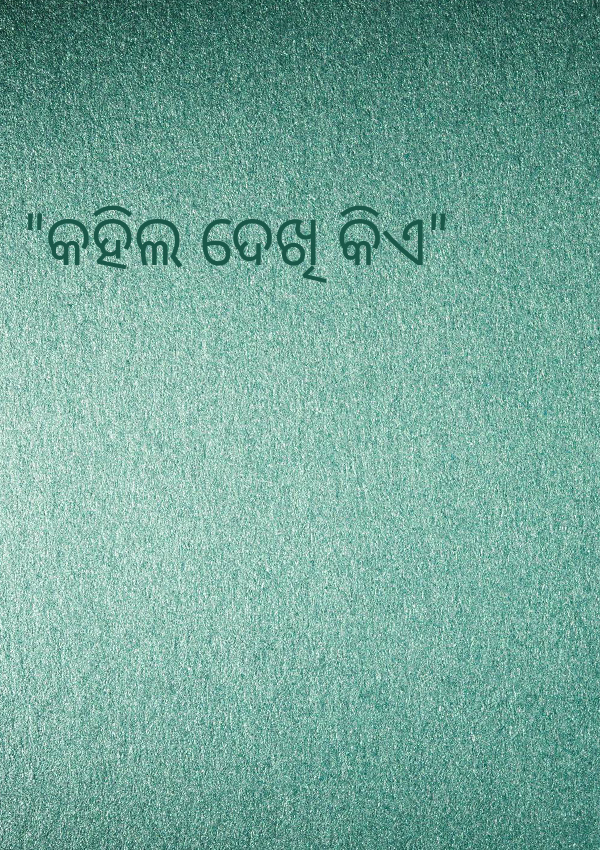 "କହିଲ ଦେଖି କିଏ"